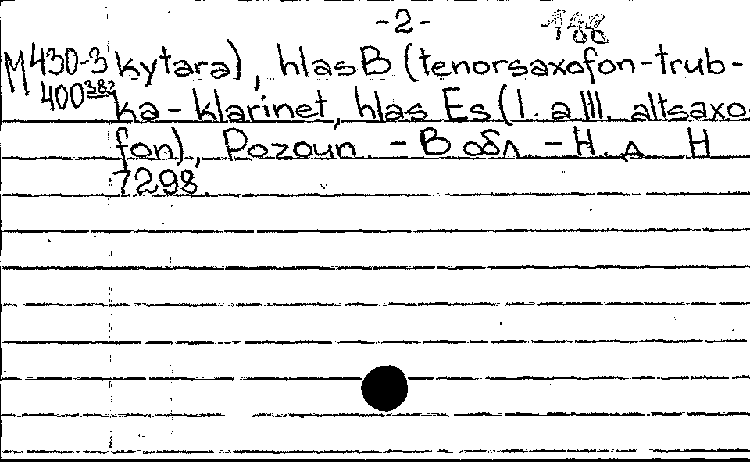 -2- 188
M 430-3 kytara), hlas B (tenorsaxofon-trub-
400 383 ka-klarinet, hlas Es (I. a III. altsaxo-
fon), Pozoun. - В обл - Н. д Н
7298.